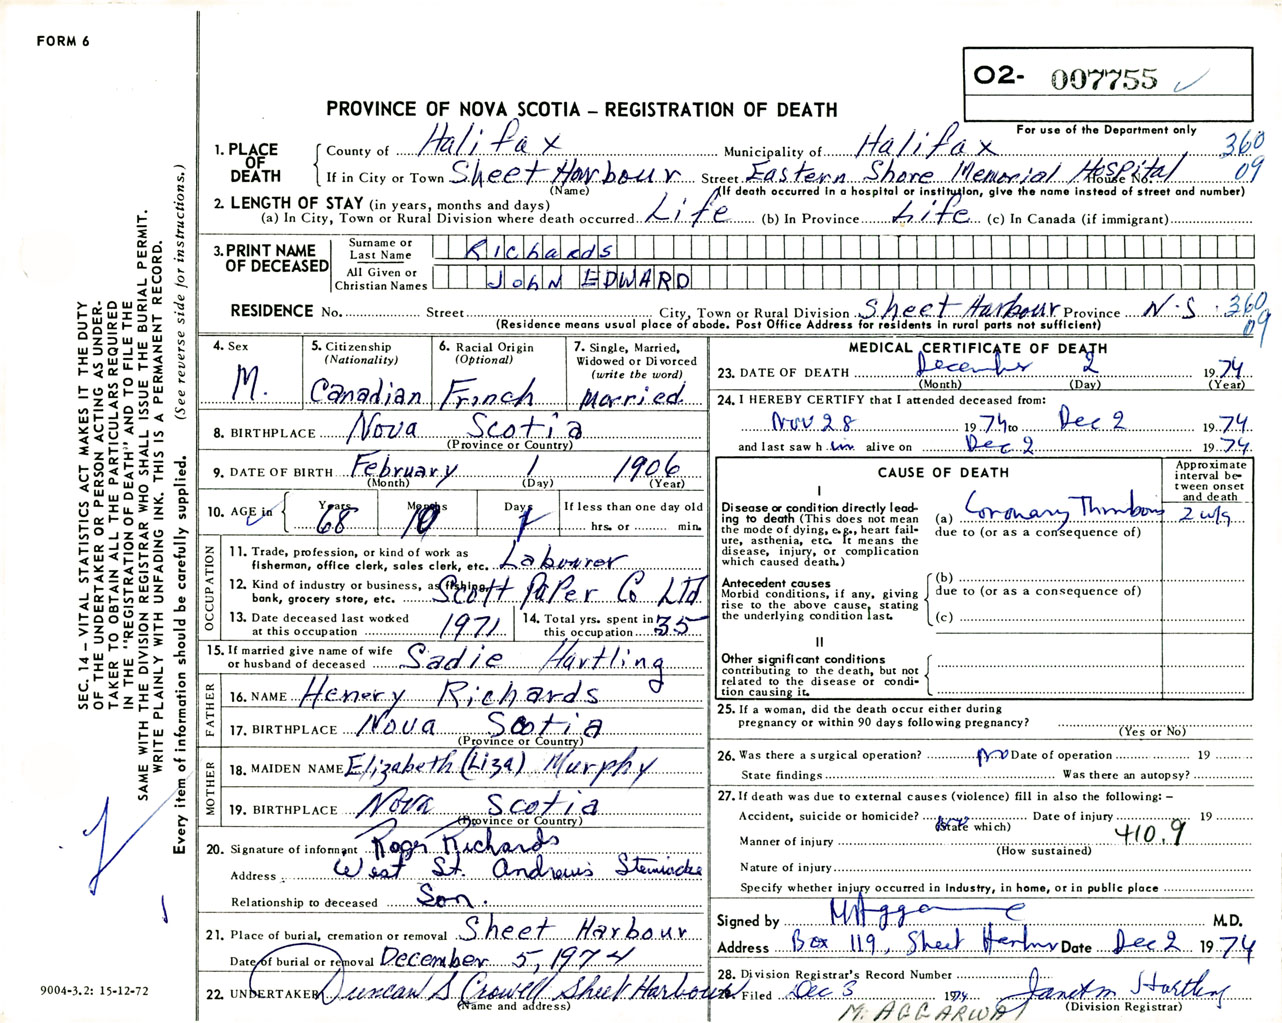 FORM 6
02- 007755
For use of the Department only
PROVINCE OF NOVA SCOTIA – REGISTRATION OF DEATH
1. PLACE OF DEATH
County of Halifax Municipality of Halifax 360
If in City or Town Sheet Harbour Street Eastern Shore Memorial Hospital House No. 09
(Name) (If death occurred in a hospital or institution, give the name instead of street and number)
2. LENGTH OF STAY (in years, months and days)
(a) In City, Town or Rural Division where death occurred Life (b) In Province Life (c) In Canada (if immigrant)
3. PRINT NAME OF DECEASED
Surname or Last Name Richards
All Given or Christian Names John EDWARD
RESIDENCE No. Street City, Town or Rural Division Sheet Harbour Province N.S. 360
09
(Residence means usual place of abode. Post Office Address for residents in rural parts not sufficient)
4. Sex M.
5. Citizenship (Nationality) Canadian
6. Racial Origin (Optional) French
7. Single, Married, Widowed or Divorced (write the word) Married
8. BIRTHPLACE Nova Scotia
(Province or Country)
9. DATE OF BIRTH February 1 1906
(Month) (Day) (Year)
10. AGE in Years 68 Months 10 Days 1 If less than one day old
hrs. or min.
OCCUPATION
11. Trade, profession, or kind of work as
fisherman, office clerk, sales clerk, etc. Labourer
12. Kind of industry or business, as fishing,
bank, grocery store, etc. Scott Paper Co Ltd
13. Date deceased last worked
at this occupation 1971
14. Total yrs. spent in
this occupation 35
15. If married give name of wife
or husband of deceased Sadie Hartling
FATHER
16. NAME Henery Richards
17. BIRTHPLACE Nova Scotia
(Province or Country)
MOTHER
18. MAIDEN NAME Elizabeth (Liza) Murphy
19. BIRTHPLACE Nova Scotia
(Province or Country)
20. Signature of informant Roger Richards
Address West St. Andrews Stewiacke
Relationship to deceased Son.
21. Place of burial, cremation or removal Sheet Harbour
Date of burial or removal December 5, 1974
22. UNDERTAKER Duncan S Crowell Sheet Harbour
(Name and address)
MEDICAL CERTIFICATE OF DEATH
23. DATE OF DEATH December 2 1974
(Month) (Day) (Year)
24. I HEREBY CERTIFY that I attended deceased from:
Nov 28 1974 to Dec 2 1974
and last saw h im alive on Dec 2 1974
CAUSE OF DEATH
Approximate interval between onset and death
I
Disease or condition directly lead-
ing to death (This does not mean
the mode of dying, e.g., heart fail-
ure, asthenia, etc. It means the
disease, injury, or complication
which caused death.)
(a) Coronary Thrombosis
due to (or as a consequence of)
Antecedent causes
Morbid conditions, if any, giving
rise to the above cause, stating
the underlying condition last.
(b)
due to (or as a consequence of)
(c)
II
Other significant conditions
contributing to the death, but not
related to the disease or condi-
tion causing it.
25. If a woman, did the death occur either during
pregnancy or within 90 days following pregnancy?
(Yes or No)
26. Was there a surgical operation? no Date of operation 19
State findings Was there an autopsy?
27. If death was due to external causes (violence) fill in also the following: –
Accident, suicide or homicide? Date of injury 19
(State which)
Manner of injury 410.9
(How sustained)
Nature of injury
Specify whether injury occurred in industry, in home, or in public place
Signed by M Aggarwal M.D.
Address Box 119, Sheet Harbour Date Dec 2 1974
28. Division Registrar's Record Number
Filed Dec 3 1974 Janet M Hartling
(Division Registrar)
M. AGGARWAL
SEC. 14 – VITAL STATISTICS ACT MAKES IT THE DUTY
OF THE UNDERTAKER OR PERSON ACTING AS UNDER-
TAKER TO OBTAIN ALL THE PARTICULARS REQUIRED
IN THE "REGISTRATION OF DEATH" AND TO FILE THE
SAME WITH THE DIVISION REGISTRAR WHO SHALL ISSUE THE BURIAL PERMIT.
WRITE PLAINLY WITH UNFADING INK. THIS IS A PERMANENT RECORD.
Every item of information should be carefully supplied. (See reverse side for instructions.)
9004-3.2: 15-12-72